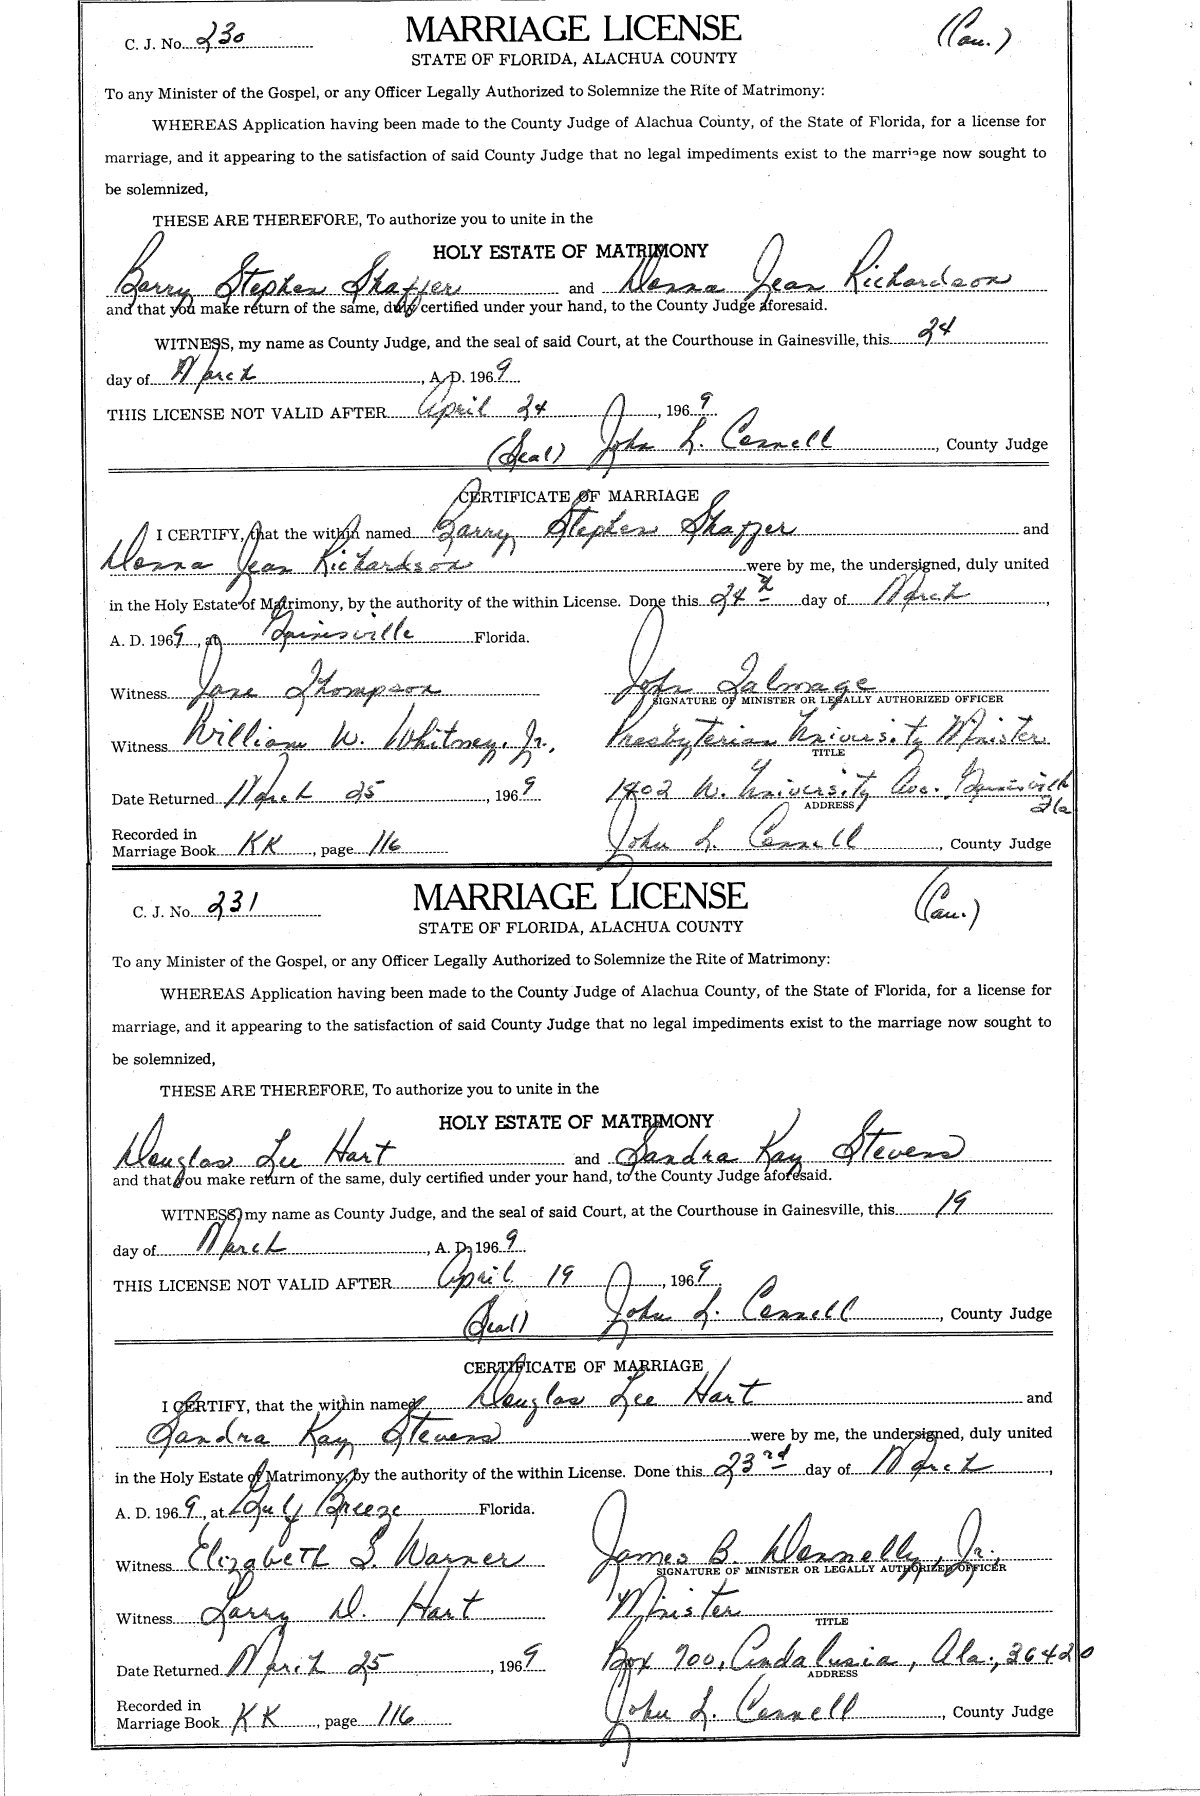 C. J. No. 230
MARRIAGE LICENSE
(Cau.)
STATE OF FLORIDA, ALACHUA COUNTY
To any Minister of the Gospel, or any Officer Legally Authorized to Solemnize the Rite of Matrimony:
WHEREAS Application having been made to the County Judge of Alachua County, of the State of Florida, for a license for
marriage, and it appearing to the satisfaction of said County Judge that no legal impediments exist to the marriage now sought to
be solemnized,
THESE ARE THEREFORE, To authorize you to unite in the
HOLY ESTATE OF MATRIMONY
Barry Stephen Shaffer and Donna Jean Richardson
and that you make return of the same, duly certified under your hand, to the County Judge aforesaid.
WITNESS, my name as County Judge, and the seal of said Court, at the Courthouse in Gainesville, this 24
day of March, A. D. 1969
THIS LICENSE NOT VALID AFTER April 24, 1969
(Seal) John L. Connell, County Judge
CERTIFICATE OF MARRIAGE
I CERTIFY, that the within named Barry Stephen Shaffer and
Donna Jean Richardson were by me, the undersigned, duly united
in the Holy Estate of Matrimony, by the authority of the within License. Done this 24th day of March,
A. D. 1969, at Gainesville Florida.
Witness Jane Thompson John Talmage
SIGNATURE OF MINISTER OR LEGALLY AUTHORIZED OFFICER
Witness William W. Whitney, Jr. Presbyterian University Minister
TITLE
Date Returned March 25, 1969 1402 W. University Ave. Gainesville
Fla
ADDRESS
Recorded in
Marriage Book KK, page 116 John L. Connell, County Judge
C. J. No. 231
MARRIAGE LICENSE
(Cau.)
STATE OF FLORIDA, ALACHUA COUNTY
To any Minister of the Gospel, or any Officer Legally Authorized to Solemnize the Rite of Matrimony:
WHEREAS Application having been made to the County Judge of Alachua County, of the State of Florida, for a license for
marriage, and it appearing to the satisfaction of said County Judge that no legal impediments exist to the marriage now sought to
be solemnized,
THESE ARE THEREFORE, To authorize you to unite in the
HOLY ESTATE OF MATRIMONY
Douglas Lee Hart and Sandra Kay Stevens
and that you make return of the same, duly certified under your hand, to the County Judge aforesaid.
WITNESS, my name as County Judge, and the seal of said Court, at the Courthouse in Gainesville, this 19
day of March, A. D. 1969
THIS LICENSE NOT VALID AFTER April 19, 1969
(Seal) John L. Connell, County Judge
CERTIFICATE OF MARRIAGE
I CERTIFY, that the within named Douglas Lee Hart and
Sandra Kay Stevens were by me, the undersigned, duly united
in the Holy Estate of Matrimony, by the authority of the within License. Done this 23rd day of March,
A. D. 1969, at Gulf Breeze Florida.
Witness Elizabeth S. Warner James B. Donnelly, Jr.,
SIGNATURE OF MINISTER OR LEGALLY AUTHORIZED OFFICER
Witness Larry D. Hart Minister
TITLE
Date Returned March 25, 1969 Box 700, Andalusia, Ala., 36420
ADDRESS
Recorded in
Marriage Book KK, page 116 John L. Connell, County Judge